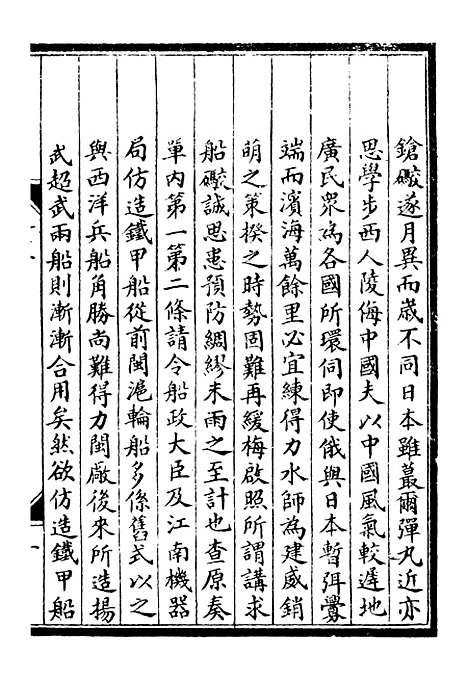 鎗礮遂月異而嵗不同日本雖蕞爾彈丸近亦
思學步西人陵侮中國夫以中國風氣較遲地
廣民衆為各國所環伺即使俄與日本暫弭釁
端而濱海萬餘里必宜練得力水師為建威銷
萌之策揆之時勢固難再緩梅啟照所謂講求
船礮誠思患預防綢繆未雨之至計也查原奏
單内第一第二條請令船政大臣及江南機器
局仿造鐵甲船從前閩滬輪船多係舊式以之
與西洋兵船角勝尚難得力閩廠後來所造揚
武超武兩船則漸漸合用矣然欲仿造鐵甲船